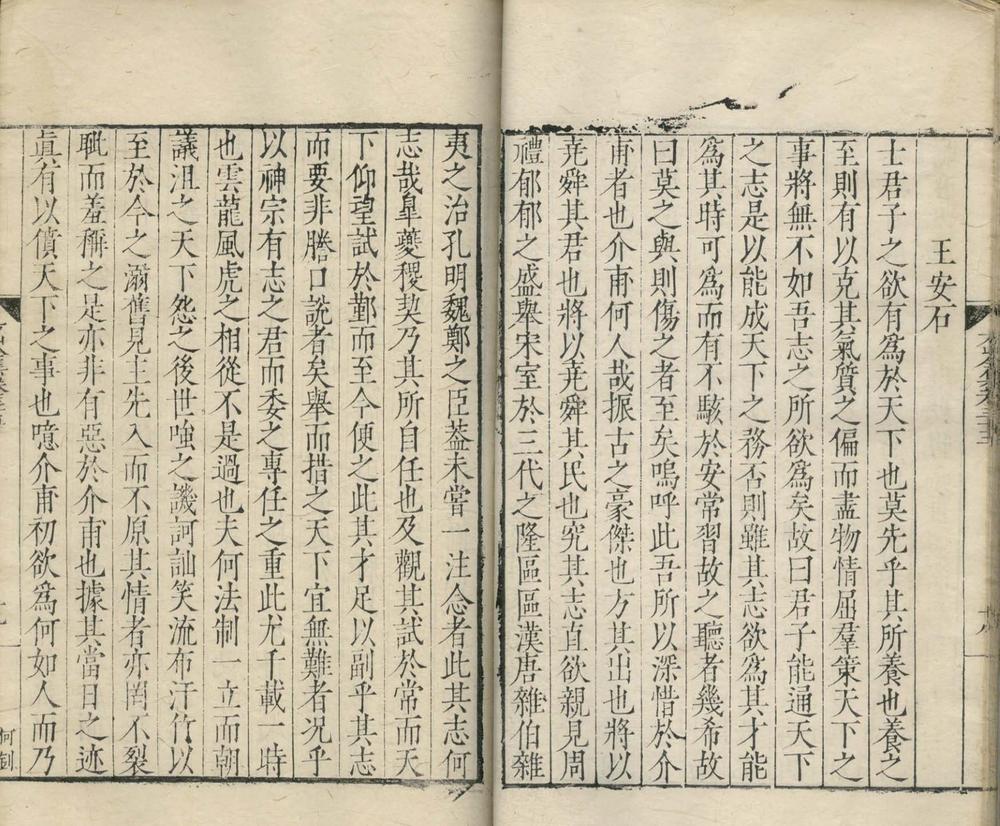 王安石
士君子之欲有爲於天下也莫先乎其所養也養之
至則有以克其氣質之偏而盡物情屈羣策天下之
事將無不如吾志之所欲爲矣故曰君子能通天下
之志是以能成天下之務否則雖其志欲爲其才能
爲其時可爲而有不駭於安常習故之聽者幾希故
曰莫之與則傷之者至矣嗚呼此吾所以深惜於介
甫者也介甫何人哉振古之豪傑也方其出也將以
堯舜其君也將以堯舜其民也究其志直欲親見周
禮郁郁之盛舉宋室於三代之隆區區漢唐雜伯雜
夷之治孔明魏鄭之臣葢未嘗一注念者此其志何
志哉臯夔稷契乃其所自任也及觀其試於常而天
下仰望試於鄞而至今便之此其才足以副乎其志
而要非謄口說者矣舉而措之天下宜無難者况乎
以神宗有志之君而委之專任之重此尤千載一時
也雲龍風虎之相從不是過也夫何法制一立而朝
議沮之天下怨之後世嗤之譏訶訕笑流布汗竹以
至於今之溺舊見主先入而不原其情者亦罔不裂
眦而羞稱之是亦非有惡於介甫也據其當日之迹
眞有以僨天下之事也噫介甫初欲爲何如人而乃
何釗